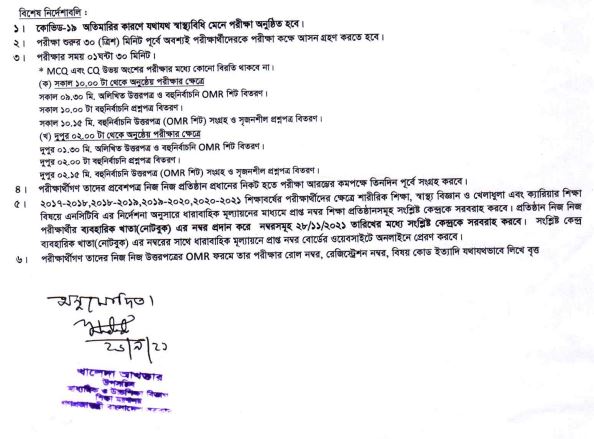 বিশেষ নির্দেশাবলি :
১। কোভিড-১৯ অতিমারির কারণে যথাযথ স্বাস্থ্যবিধি মেনে পরীক্ষা অনুষ্ঠিত হবে।
২। পরীক্ষা শুরুর ৩০ (ত্রিশ) মিনিট পূর্বে অবশ্যই পরীক্ষার্থীদেরকে পরীক্ষা কক্ষে আসন গ্রহণ করতে হবে।
৩। পরীক্ষার সময় ০১ঘন্টা ৩০ মিনিট।
* MCQ এবং CQ উভয় অংশের পরীক্ষার মধ্যে কোনো বিরতি থাকবে না।
(ক) সকাল ১০,০০ টা থেকে অনুষ্ঠেয় পরীক্ষার ক্ষেত্রে
সকাল ০৯.৩০ মি. অলিখিত উত্তরপত্র ও বহুনির্বাচনি OMR শিট বিতরণ।
সকাল ১০.০০ টা বহুনির্বাচনি প্রশ্নপত্র বিতরণ।
সকাল ১০.১৫ মি. বহুনির্বাচনি উত্তরপত্র (OMR শিট) সংগ্রহ ও সৃজনশীল প্রশ্নপত্র বিতরণ।
(খ) দুপুর ০২.০০ টা থেকে অনুষ্ঠেয় পরীক্ষার ক্ষেত্রে
দুপুর ০১.৩০ মি. অলিখিত উত্তরপত্র ও বহুনির্বাচনি OMR শিট বিতরণ।
দুপুর ০২.০০ টা বহুনির্বাচনি প্রশ্নপত্র বিতরণ।
দুপুর ০২.১৫ মি. বহুনির্বাচনি উত্তরপত্র (OMR শিট) সংগ্রহ ও সৃজনশীল প্রশ্নপত্র বিতরণ।
৪। পরীক্ষার্থীগণ তাদের প্রবেশপত্র নিজ নিজ প্রতিষ্ঠান প্রধানের নিকট হতে পরীক্ষা আরম্ভের কমপক্ষে তিনদিন পূর্বে সংগ্রহ করবে।
৫। ২০১৭-২০১৮,২০১৮-২০১৯,২০১৯-২০২০,২০২০-২০২১ শিক্ষাবর্ষের পরীক্ষার্থীদের ক্ষেত্রে শারীরিক শিক্ষা, স্বাস্থ্য বিজ্ঞান ও খেলাধুলা এবং ক্যারিয়ার শিক্ষা
বিষয়ে এনসিটিবি এর নির্দেশনা অনুসারে ধারাবাহিক মূল্যায়নের মাধ্যমে প্রাপ্ত নম্বর শিক্ষা প্রতিষ্ঠানসমূহ সংশ্লিষ্ট কেন্দ্রকে সরবরাহ করবে। প্রতিষ্ঠান নিজ নিজ
পরীক্ষার্থীর ব্যবহারিক খাতা(নোটবুক) এর নম্বর প্রদান করে নম্বরসমূহ ২৮/১১/২০২১ তারিখের মধ্যে সংশ্লিষ্ট কেন্দ্রকে সরবরাহ করবে। সংশ্লিষ্ট কেন্দ্র
ব্যবহারিক খাতা(নোটবুক) এর নম্বরের সাথে ধারাবাহিক মূল্যায়নে প্রাপ্ত নম্বর বোর্ডের ওয়েবসাইটে অনলাইনে প্রেরণ করবে।
৬। পরীক্ষার্থীগণ তাদের নিজ নিজ উত্তরপত্রের OMR ফরমে তার পরীক্ষার রোল নম্বর, রেজিস্ট্রেশন নম্বর, বিষয় কোড ইত্যাদি যথাযথভাবে লিখে বৃত্ত
অনুমোদিত।
২৬/৯/২১
খালেদা আখতার
উপসচিব
মাধ্যমিক ও উচ্চশিক্ষা বিভাগ
শিক্ষা মন্ত্রণালয়
গণপ্রজাতন্ত্রী বাংলাদেশ সরকার